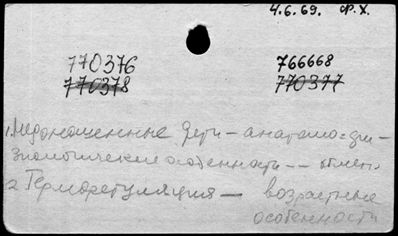 4.6.69. Ф.Х.
770376 766668
770378 770377
1. Недоношенные дети – анатомо-фи-
зиологические особенности --
2. Терморегуляция — возрастные
особенности